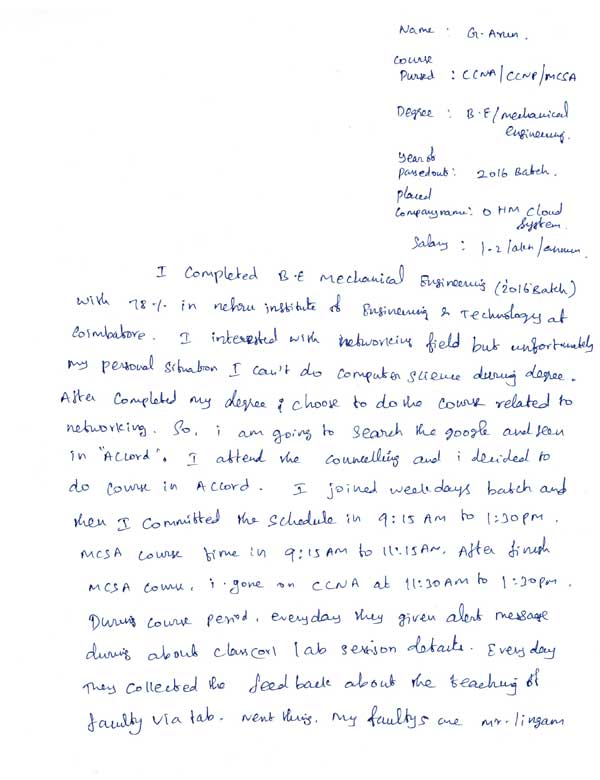 Name : G. Arun.
Course
Pursed : CCNA/CCNP/MCSA
Degree : B.E/mechanical
Engineering.
Year of
passedout: 2016 Batch.
placed
Company name: OHM Cloud
System.
Salary : 1.2/lakh/annum.
I Completed B.E Mechanical Engineering (2016 Batch)
with 78% in nehru institute of Engineering & Technology at
Coimbatore. I interested with networking field but unfortunately
my personal situation I can't do computer science during degree.
After completed my degree i choose to do the course related to
networking. So, i am going to search the google and seen
in "Accord". I attend the councelling and i decided to
do course in Accord. I joined weekdays batch and
then I Committed the schedule in 9:15 AM to 1:30 pm.
MCSA course time in 9:15 AM to 11:15 AM. After finish
MCSA course, i gone on CCNA at 11:30 AM to 1:30pm.
During course period, everyday they given alert message
during about class (or) lab session details. Everyday
They collected the feedback about the teaching of
faculty via tab. Next thing, my facultys are mr. lingam